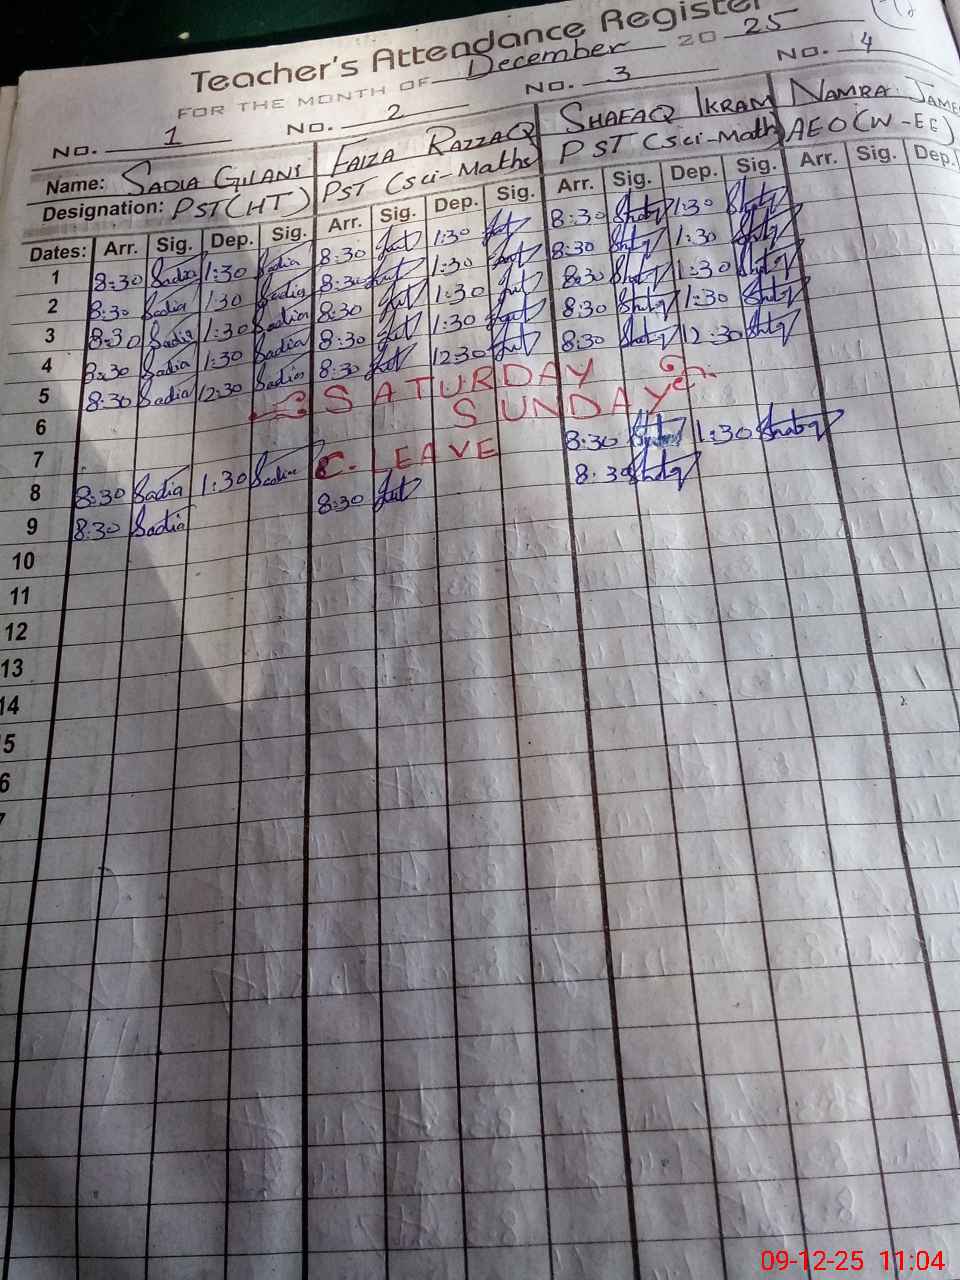 Teacher's Attendance Register
FOR THE MONTH OF December 20 25
No. 1 No. 2 No. 3 No. 4
Name: SADIA GILANI FAIZA RAZZAQ SHAFAQ IKRAM NAMRA JAMES
Designation: PST(HT) PST (sci-Maths) PST (sci-Math) AEO(W-EE)
Dates: Arr. Sig. Dep. Sig. Arr. Sig. Dep. Sig. Arr. Sig. Dep. Sig. Arr. Sig. Dep.
1 8:30 Sadia 1:30 Sadia 8:30 1:30 8:30 1:30
2 8:30 Sadia 1:30 Sadia 8:30 1:30 8:30 1:30
3 8:30 Sadia 1:30 Sadia 8:30 1:30 8:30 1:30
4 8:30 Sadia 1:30 Sadia 8:30 1:30 8:30 1:30
5 8:30 Sadia 12:30 Sadia 8:30 12:30 8:30 12:30
6 SATURDAY
7 SUNDAY
8 8:30 Sadia 1:30 Sadia C. LEAVE 8:30 1:30
9 8:30 Sadia 8:30 8:30
10
11
12
13
14
5
6
7
09-12-25 11:04